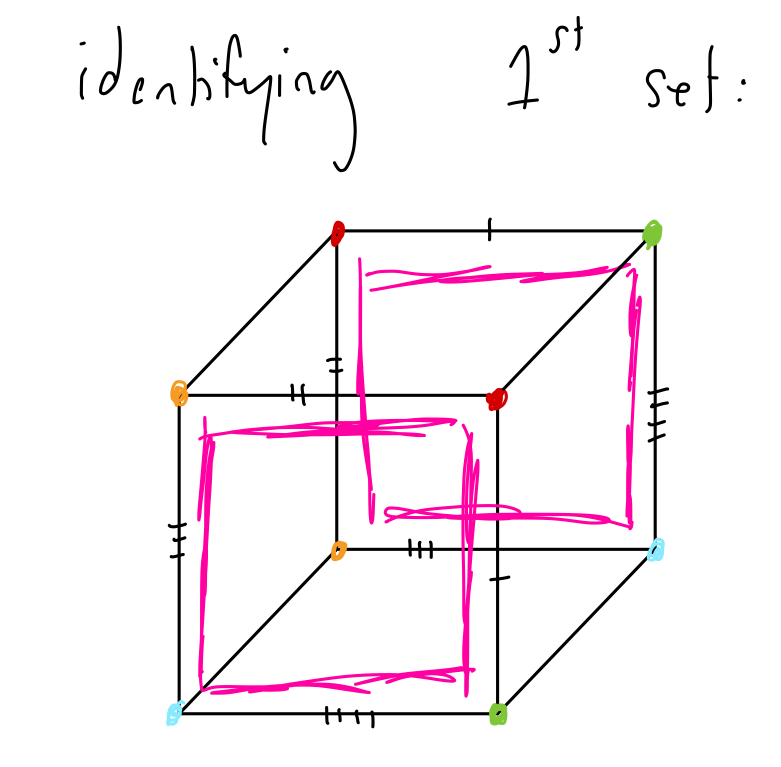 identifying 1st set: